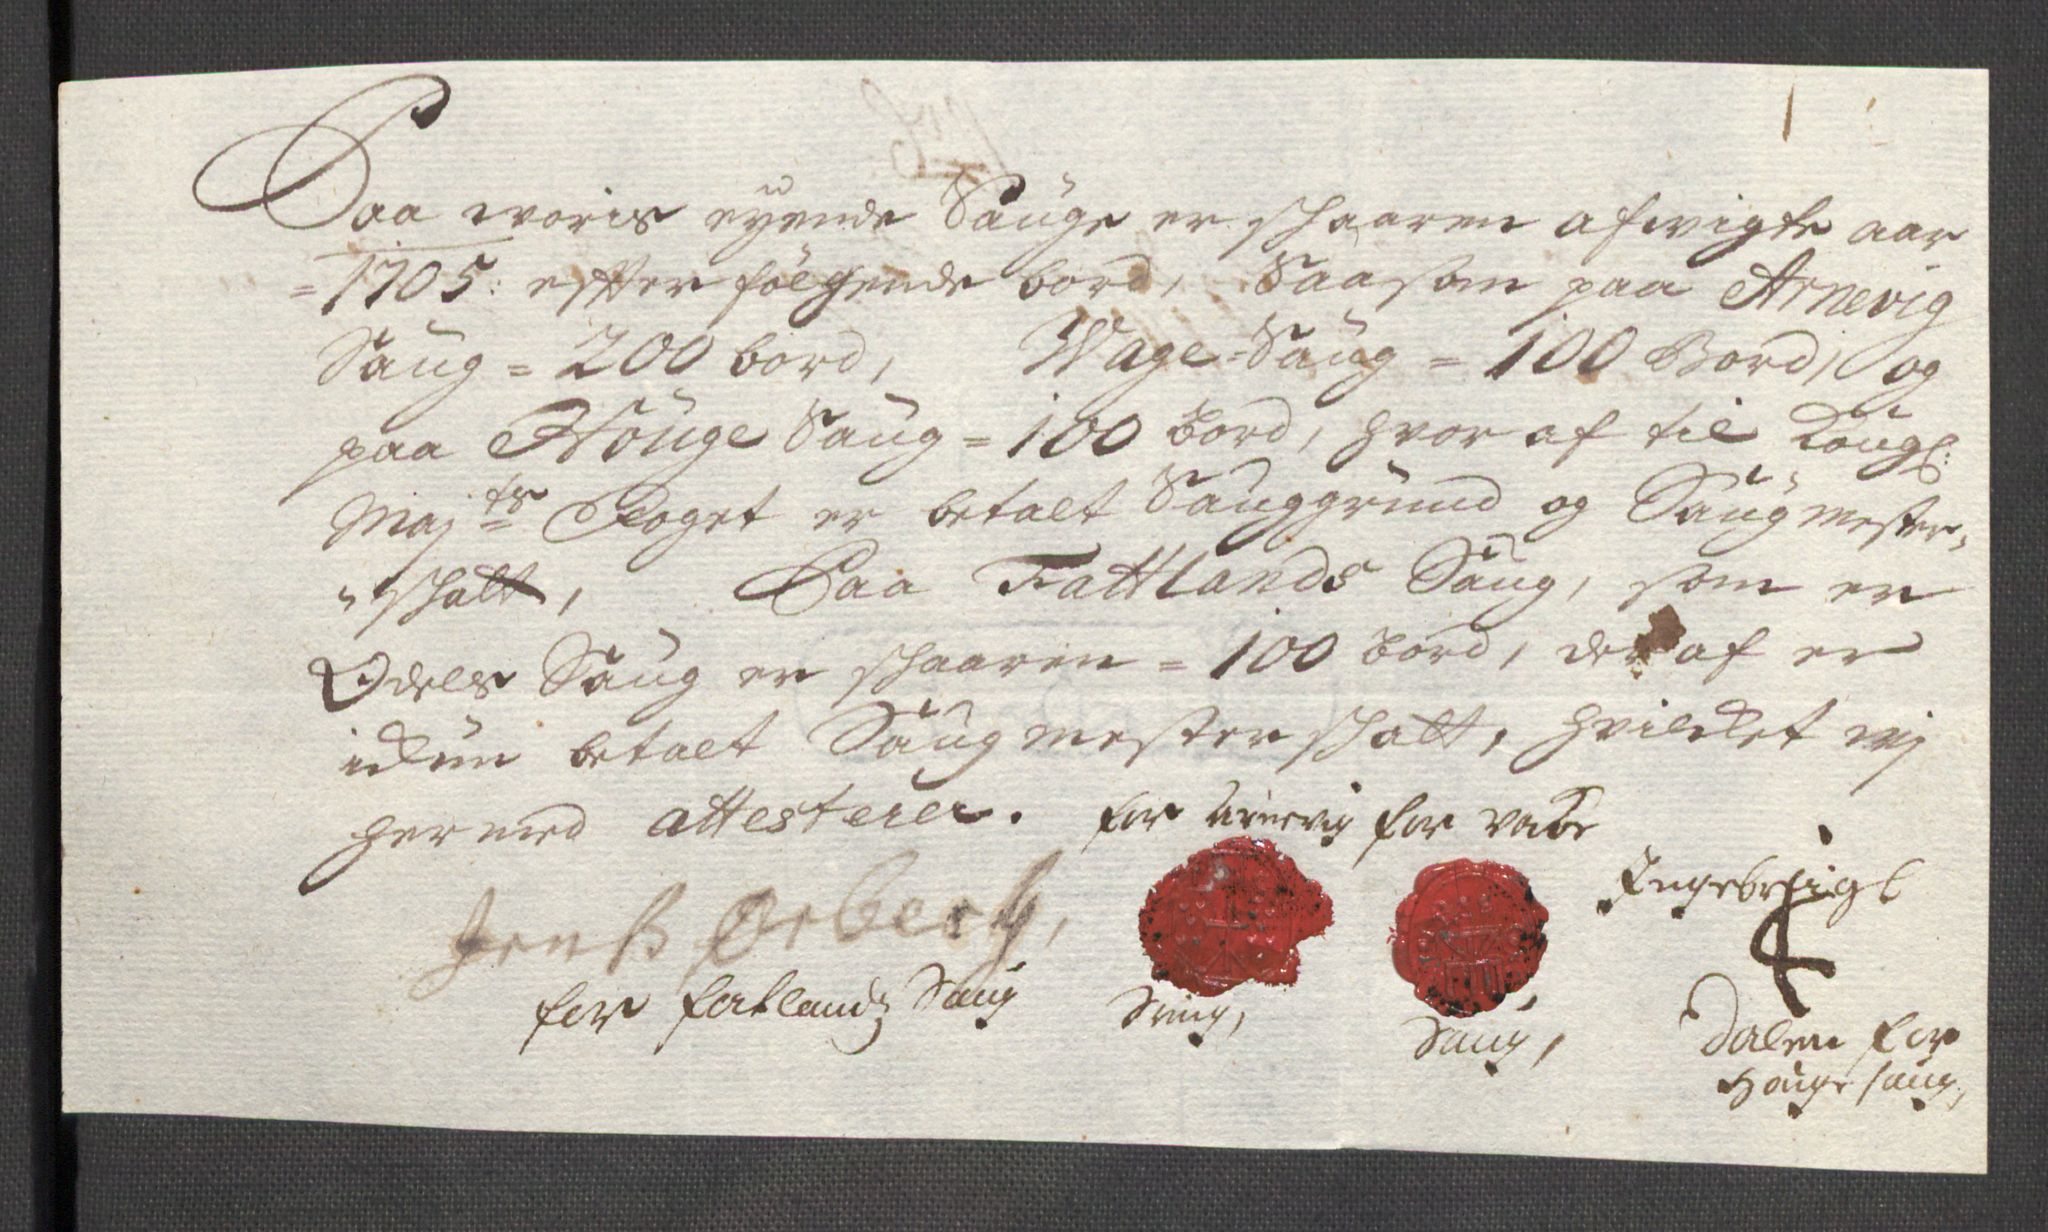 Paa woris eyende Sauge er schaaren afwigte aar
= 1705: effter følgende bord, Saasom paa Arnevig
Saug = 200 bord, Wage-Saug = 100 Bord, og
paa Houge Saug = 100 bord, hvor af til Kongl:
Maj:ts Foget er betalt Sauggrund og Saugmester-
-schatt, Paa Fattlands Saug, som er
Odels Saug er schaaren = 100 bord, der af er
ickun betalt Saugmester schatt, hvilcket wj
hermed attesterer. for Arnevig for Vage
Jenß Orbech, Ingebrigt
for fatlandz Saug Saug, Saug, Dalen for
Houge saug,